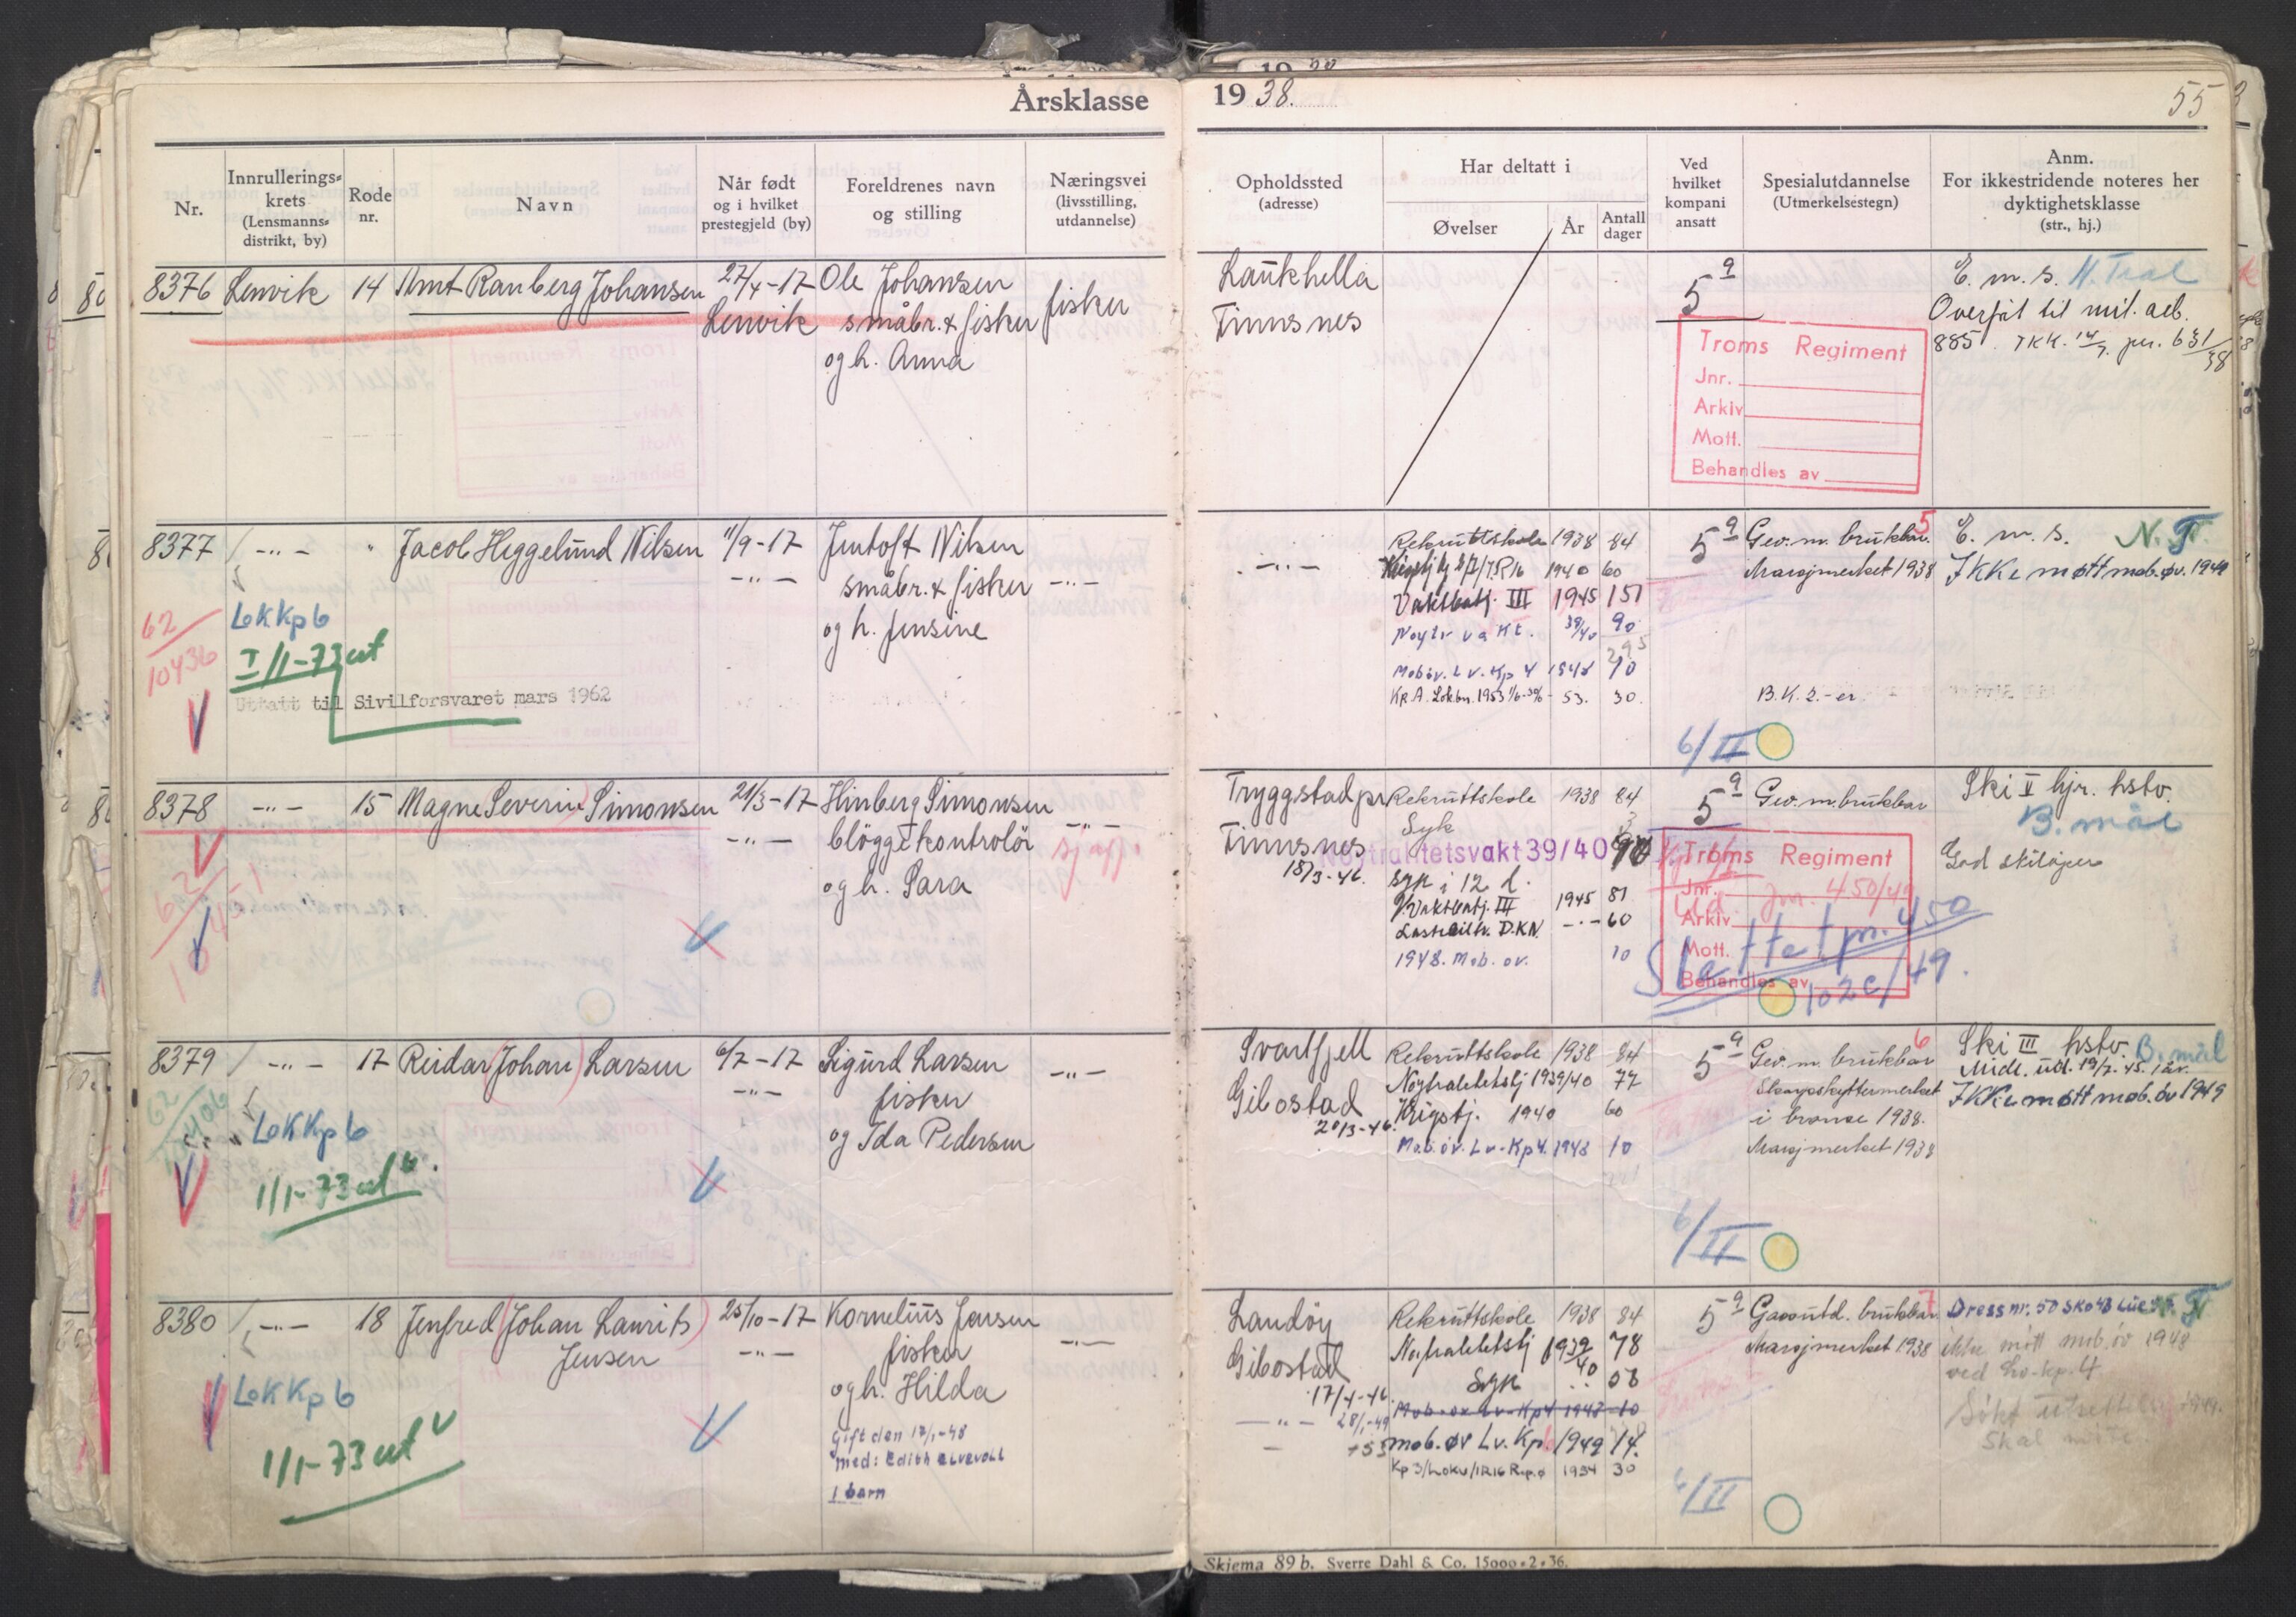 Årsklasse
1938.
55
Nr.
Innrullerings=
krets
(Lensmanns=
distrikt, by)
Rode
nr.
Navn
Når født
og i hvilket
prestegjeld (by)
Foreldrenes navn
og stilling
Næringsvei
(livsstilling,
utdannelse)
Opholdssted
(adresse)
Har deltatt i
Øvelser
År
Antall
dager
Ved
hvilket
kompani
ansatt
Spesialutdannelse
(Utmerkelsestegn)
Anm.
For ikkestridende noteres her
dyktighetsklasse
(str., hj.)
8376 Lenvik 14 Arnt Ranberg Johansen 27/4-17 Ole Johansen fisker
Lenvik småbr. & fisker
og h. Anna
Laukhella
Finnsnes
5 a
E. m. s.
Overført til mil. arb.
885
Troms Regiment
Jnr.
Arkiv
Mott.
Behandles av
8377 -"- " Jacob Heggelund Nilsen 11/9-17 Jentoft Nilsen
-"- småbr. & fisker -"-
og h. Jensine
LoKKp 6
62
10436
I/1-73 ut
Uttatt til Sivilforsvaret mars 1962
-"- Rekruttskole 1938 84
1940 60
Vaktbatj. III 1945 151
Nøytr vakt. 39/40 90
295
Mob.øv. Lv. Kp 4 1948 10
Kp. A. Lokbn. 1953 - 53. 30.
5 a Gev. m. brukbar. 5
Marsjmerket 1938
B.K. 2.-er
E. m. s.
Ikke møtt mob. øv. 1949
6/II
8378 -"- 15 Magne Severin Simonsen 21/3-17 Hinberg Simonsen
-"- bløggekontrolör -"-
og h. Sara
62
Tryggstad pr
Finnsnes
18/3-46.
Rekruttskole 1938 84
Syk
Nøytralitetsvakt 39/40 90
Syk i 12 d.
Vaktbatj. III 1945 81
D.K.N. -"- 60
1948. Mob. øv. 10
5 a Gev. m. brukbar
Ski II hjr. hstv.
B. mål
God skiløper
Troms Regiment
Jnr. Jnr. 450/49
Arkiv
Mott.
Behandles av
Slettet jnr. 450
102c/49.
8379 -"- 17 Reidar (Johan) Larsen 6/7-17 Sigurd Larsen
-"- fisker -"-
og Ida Pedersen
62
LoKKp 6
1/1-73 ut
Svartfjell
Gibostad
20/3-46.
Rekruttskole 1938 84
Nøytralitetstj 1939/40 77
Krigstj. 1940 60
Mob.øv. Lv. Kp 4. 1948 10
5 a Gev. m. brukbar 6
Skarpskyttermerket
i bronse 1938.
Marsjmerket 1938
Ski III hstv. B. mål
Midl. ud. 19/7.45. 1 år.
Ikke møtt mob. øv 1949
6/II
8380 -"- 18 Jenfred (Johan Laurits) 25/10-17 Kornelius Jensen
Jensen -"- fisker -"-
og h. Hilda
LoKKp 6
1/1-73 ut
Gift den 17/1-48
med: Edith Elvevoll
1 barn
Landøy
Gibostad
17/4-46.
-"- 28/1-49
Rekruttskole 1938 84
1939/40 78
Syk 58
Mob. øv Lv. Kp 4 1948 10
mob. øv Lv. Kp 6 1949 14.
1954 30
5 a Gassutd. brukbar. 7
Marsjmerket 1938
Dress nr. 50 Sko 43
ikke møtt mob. øv 1948
ved Lv. kp. 4
Søkt utsettelse
Skal møte.
6/II
Skjema 89 b. Sverre Dahl & Co. 15000-2-36.